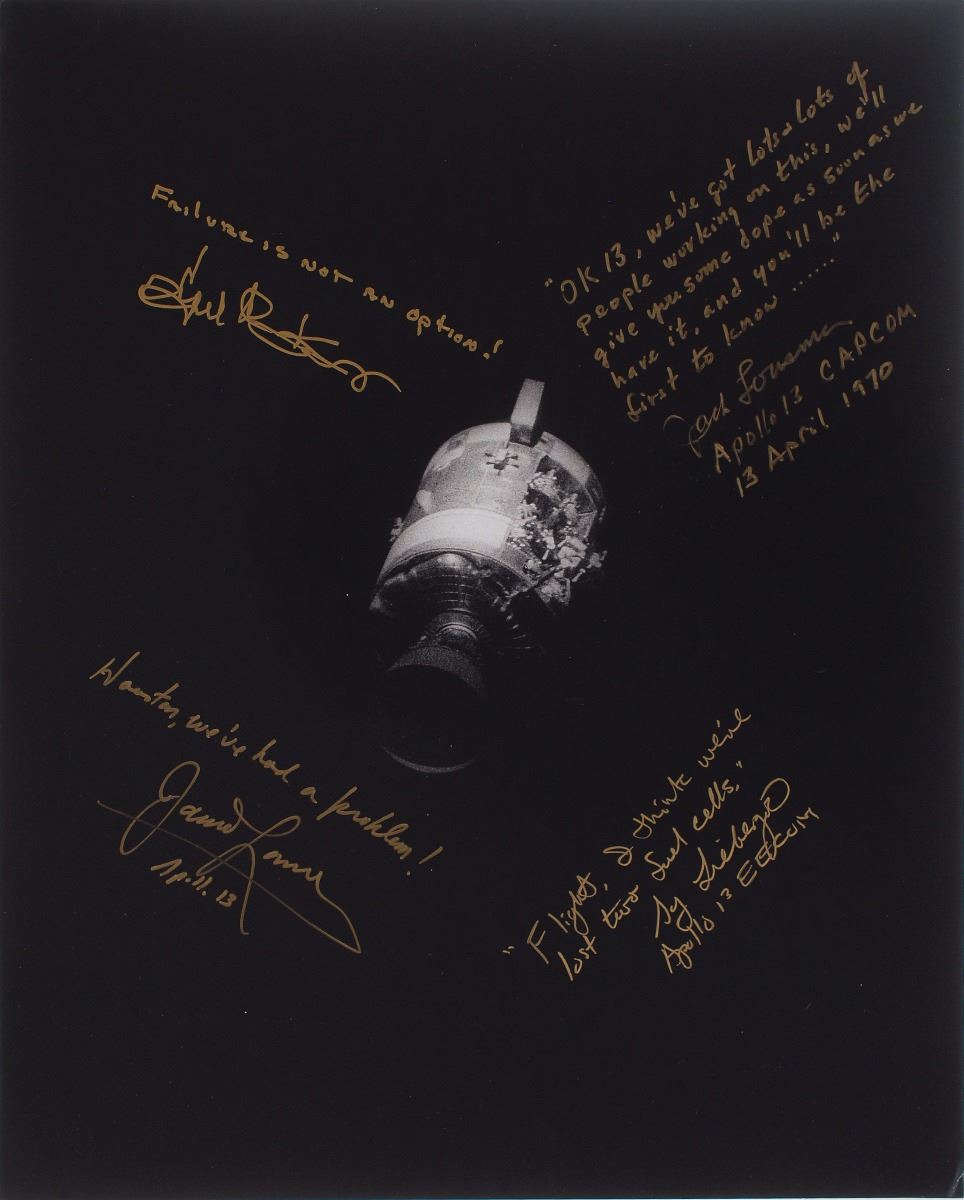 FAILURE IS NOT AN OPTION!
"OK 13, we've got lots & lots of
people working on this, we'll
give you some dope as soon as we
have it, and you'll be the
first to know ......"
Jack Lousma
Apollo 13 CAPCOM
13 April 1970
Houston, we've had a problem!
James Lovell
Ap. 11. 13
"Flight, I think we've
lost two fuel cells,"
Sy Liebergot
Apollo 13 EECOM